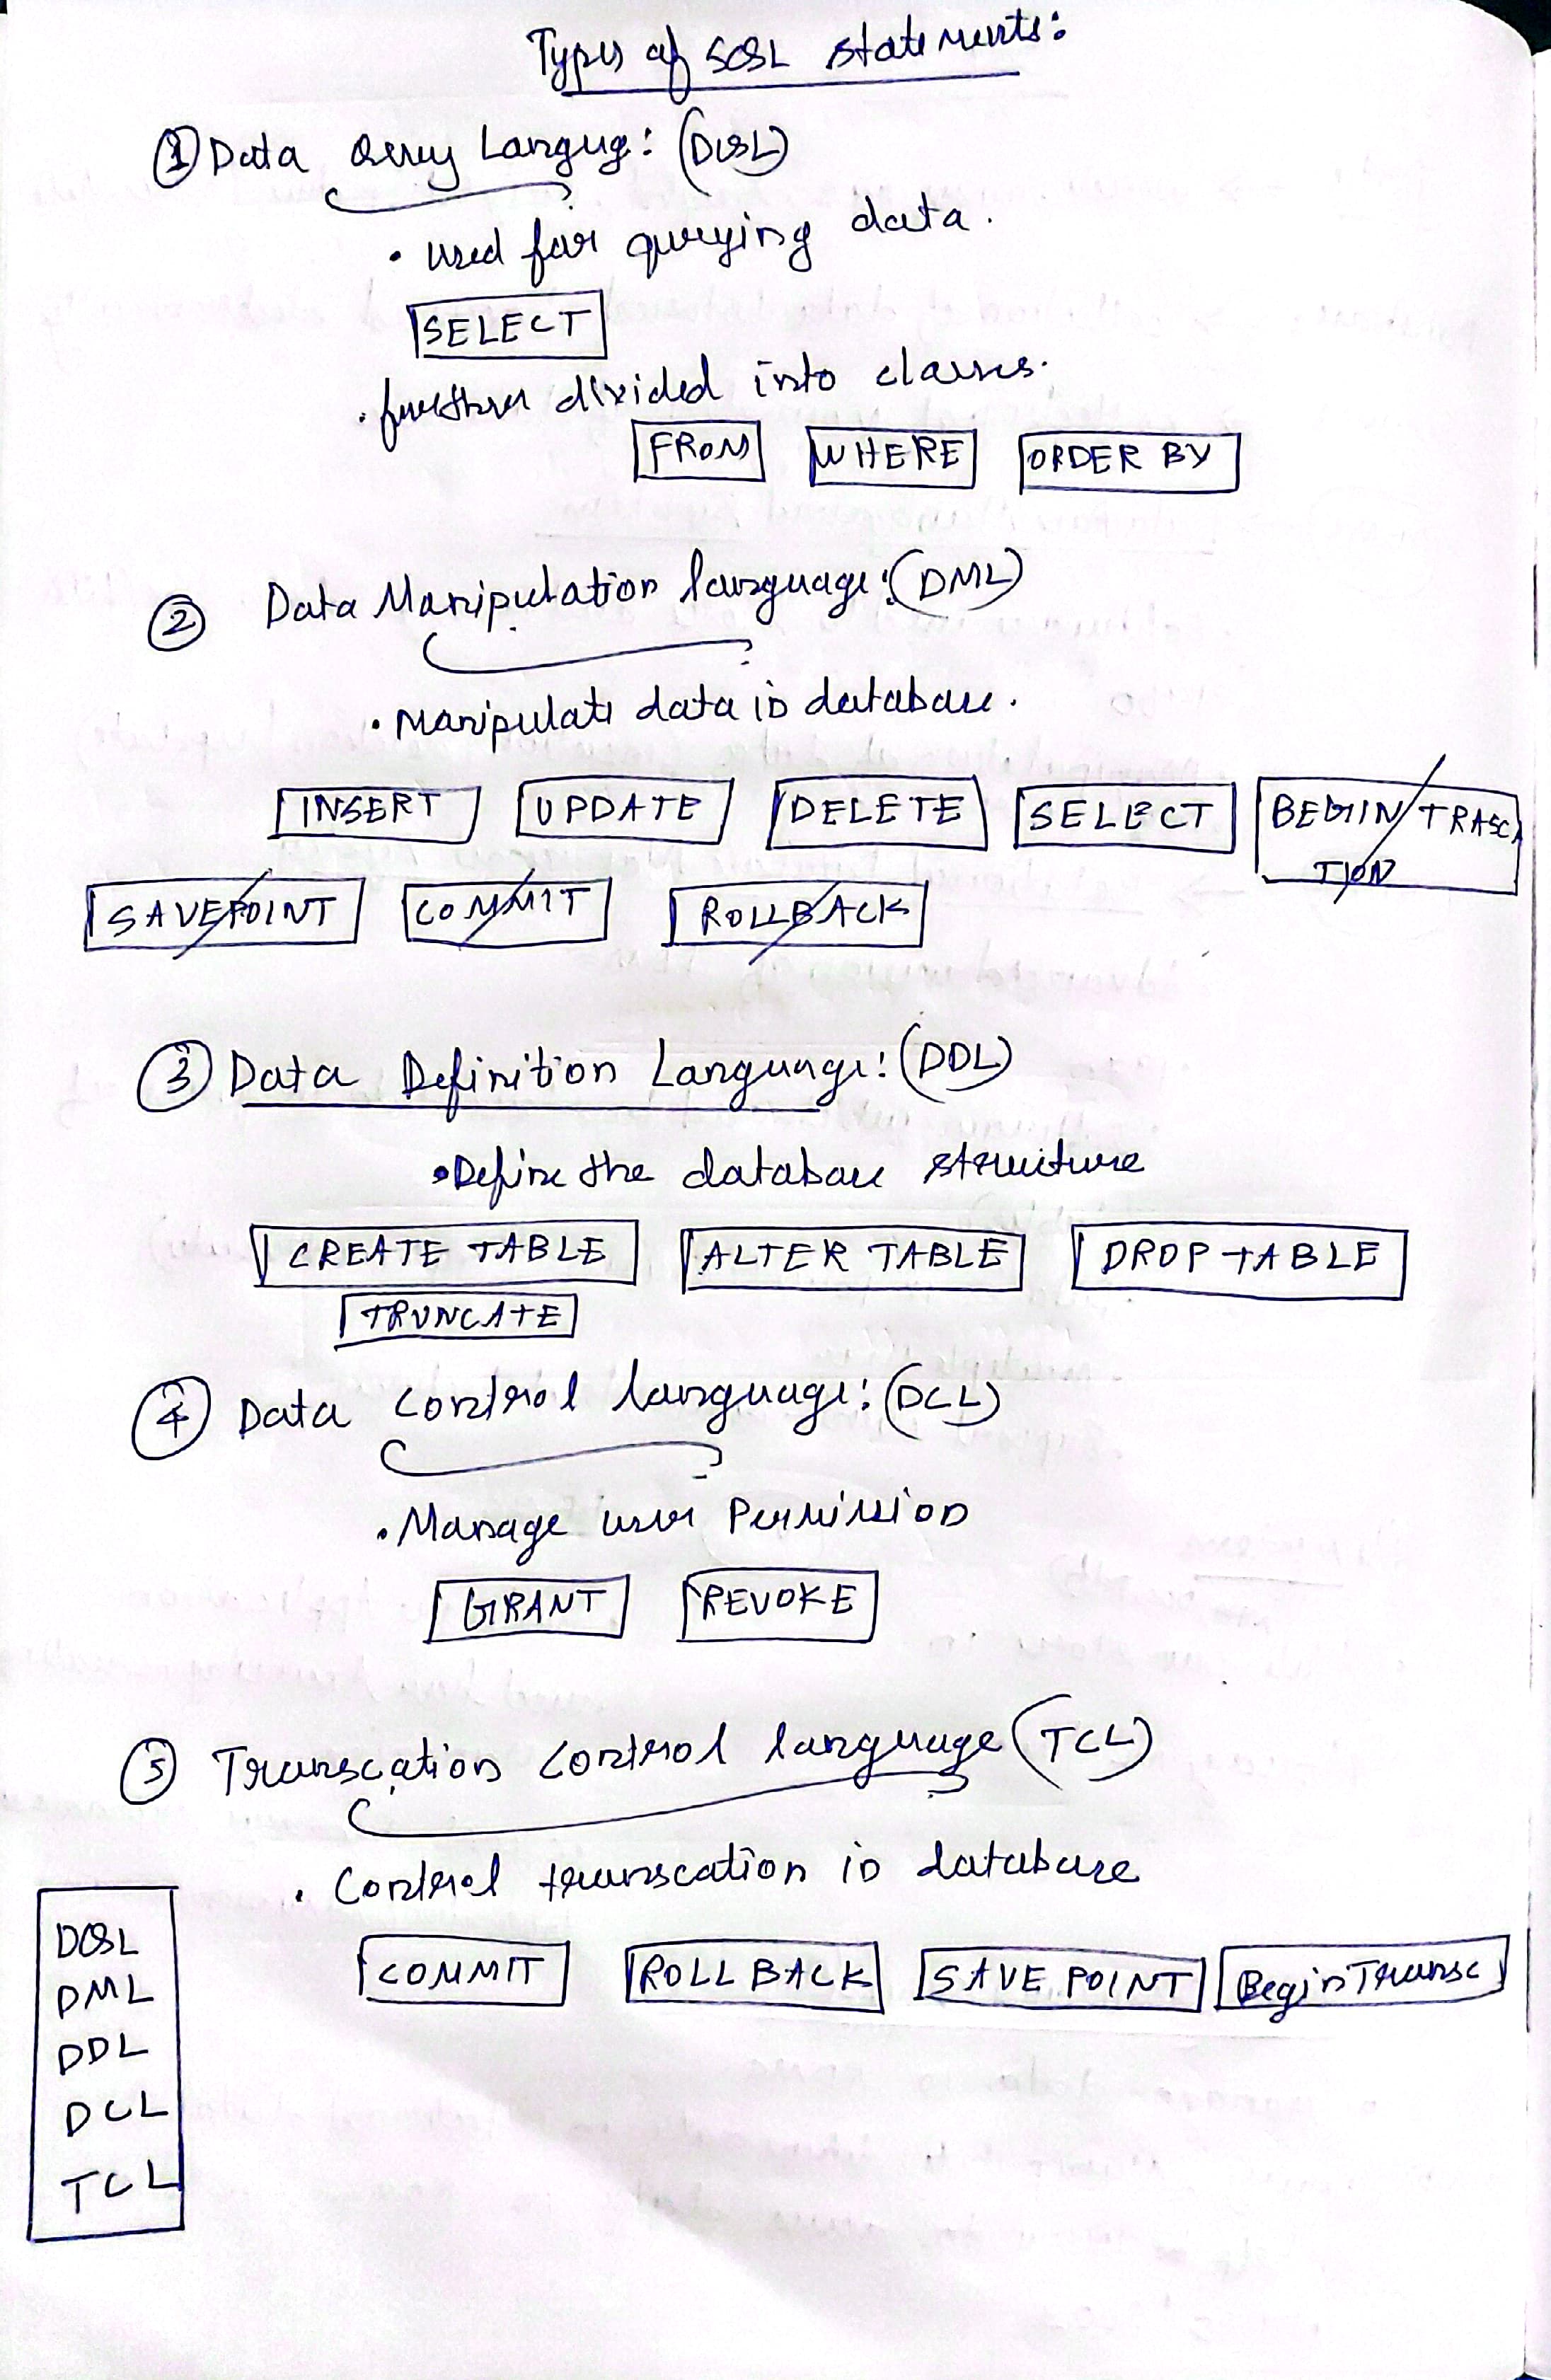 Types of SQL statements:
① Data Query Langug: (DQL)
• used for querying data.
SELECT
• further divided into clauses.
FROM WHERE ORDER BY
② Data Manipulation language: (DML)
• Manipulate data in database.
INSERT UPDATE DELETE SELECT BEGIN TRASCA
TION
SAVEPOINT COMMIT ROLLBACK
③ Data Definition Language: (DDL)
• Define the database structure
CREATE TABLE ALTER TABLE DROP TABLE
TRUNCATE
④ Data Control language: (DCL)
• Manage user Permission
GRANT REVOKE
⑤ Transcation Control language (TCL)
• Control transcation in database
COMMIT ROLL BACK SAVE POINT Begin Transc
DQL
DML
DDL
DCL
TCL